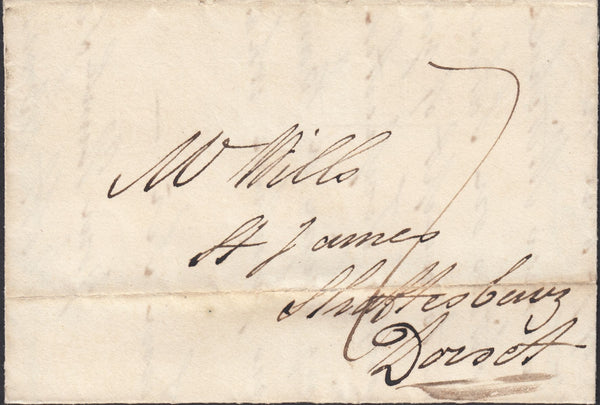 Mr Wills
7
St James
Shaftesbury
Dorset